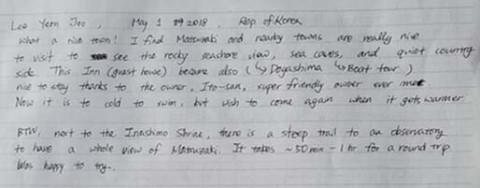 Lee Yern Joo, May 1 2018, Rep of Korea
What a nice town! I find Matsuzaki and nearby towns are really nice
to visit to see the rocky seashore view, sea caves, and quiet country
side. This Inn (guest house) became also (↳ Dogashima ↳ Boat tour)
nice to stay thanks to the owner, Ito-san, super friendly owner ever met
Now it is to cold to swim, but wish to come again when it gets warmer
BTW, next to the Inashimo Shrine, there is a steep trail to an observatory
to have a whole view of Matsuzaki. It takes ~50min - 1hr for a round trip
Was happy to try.